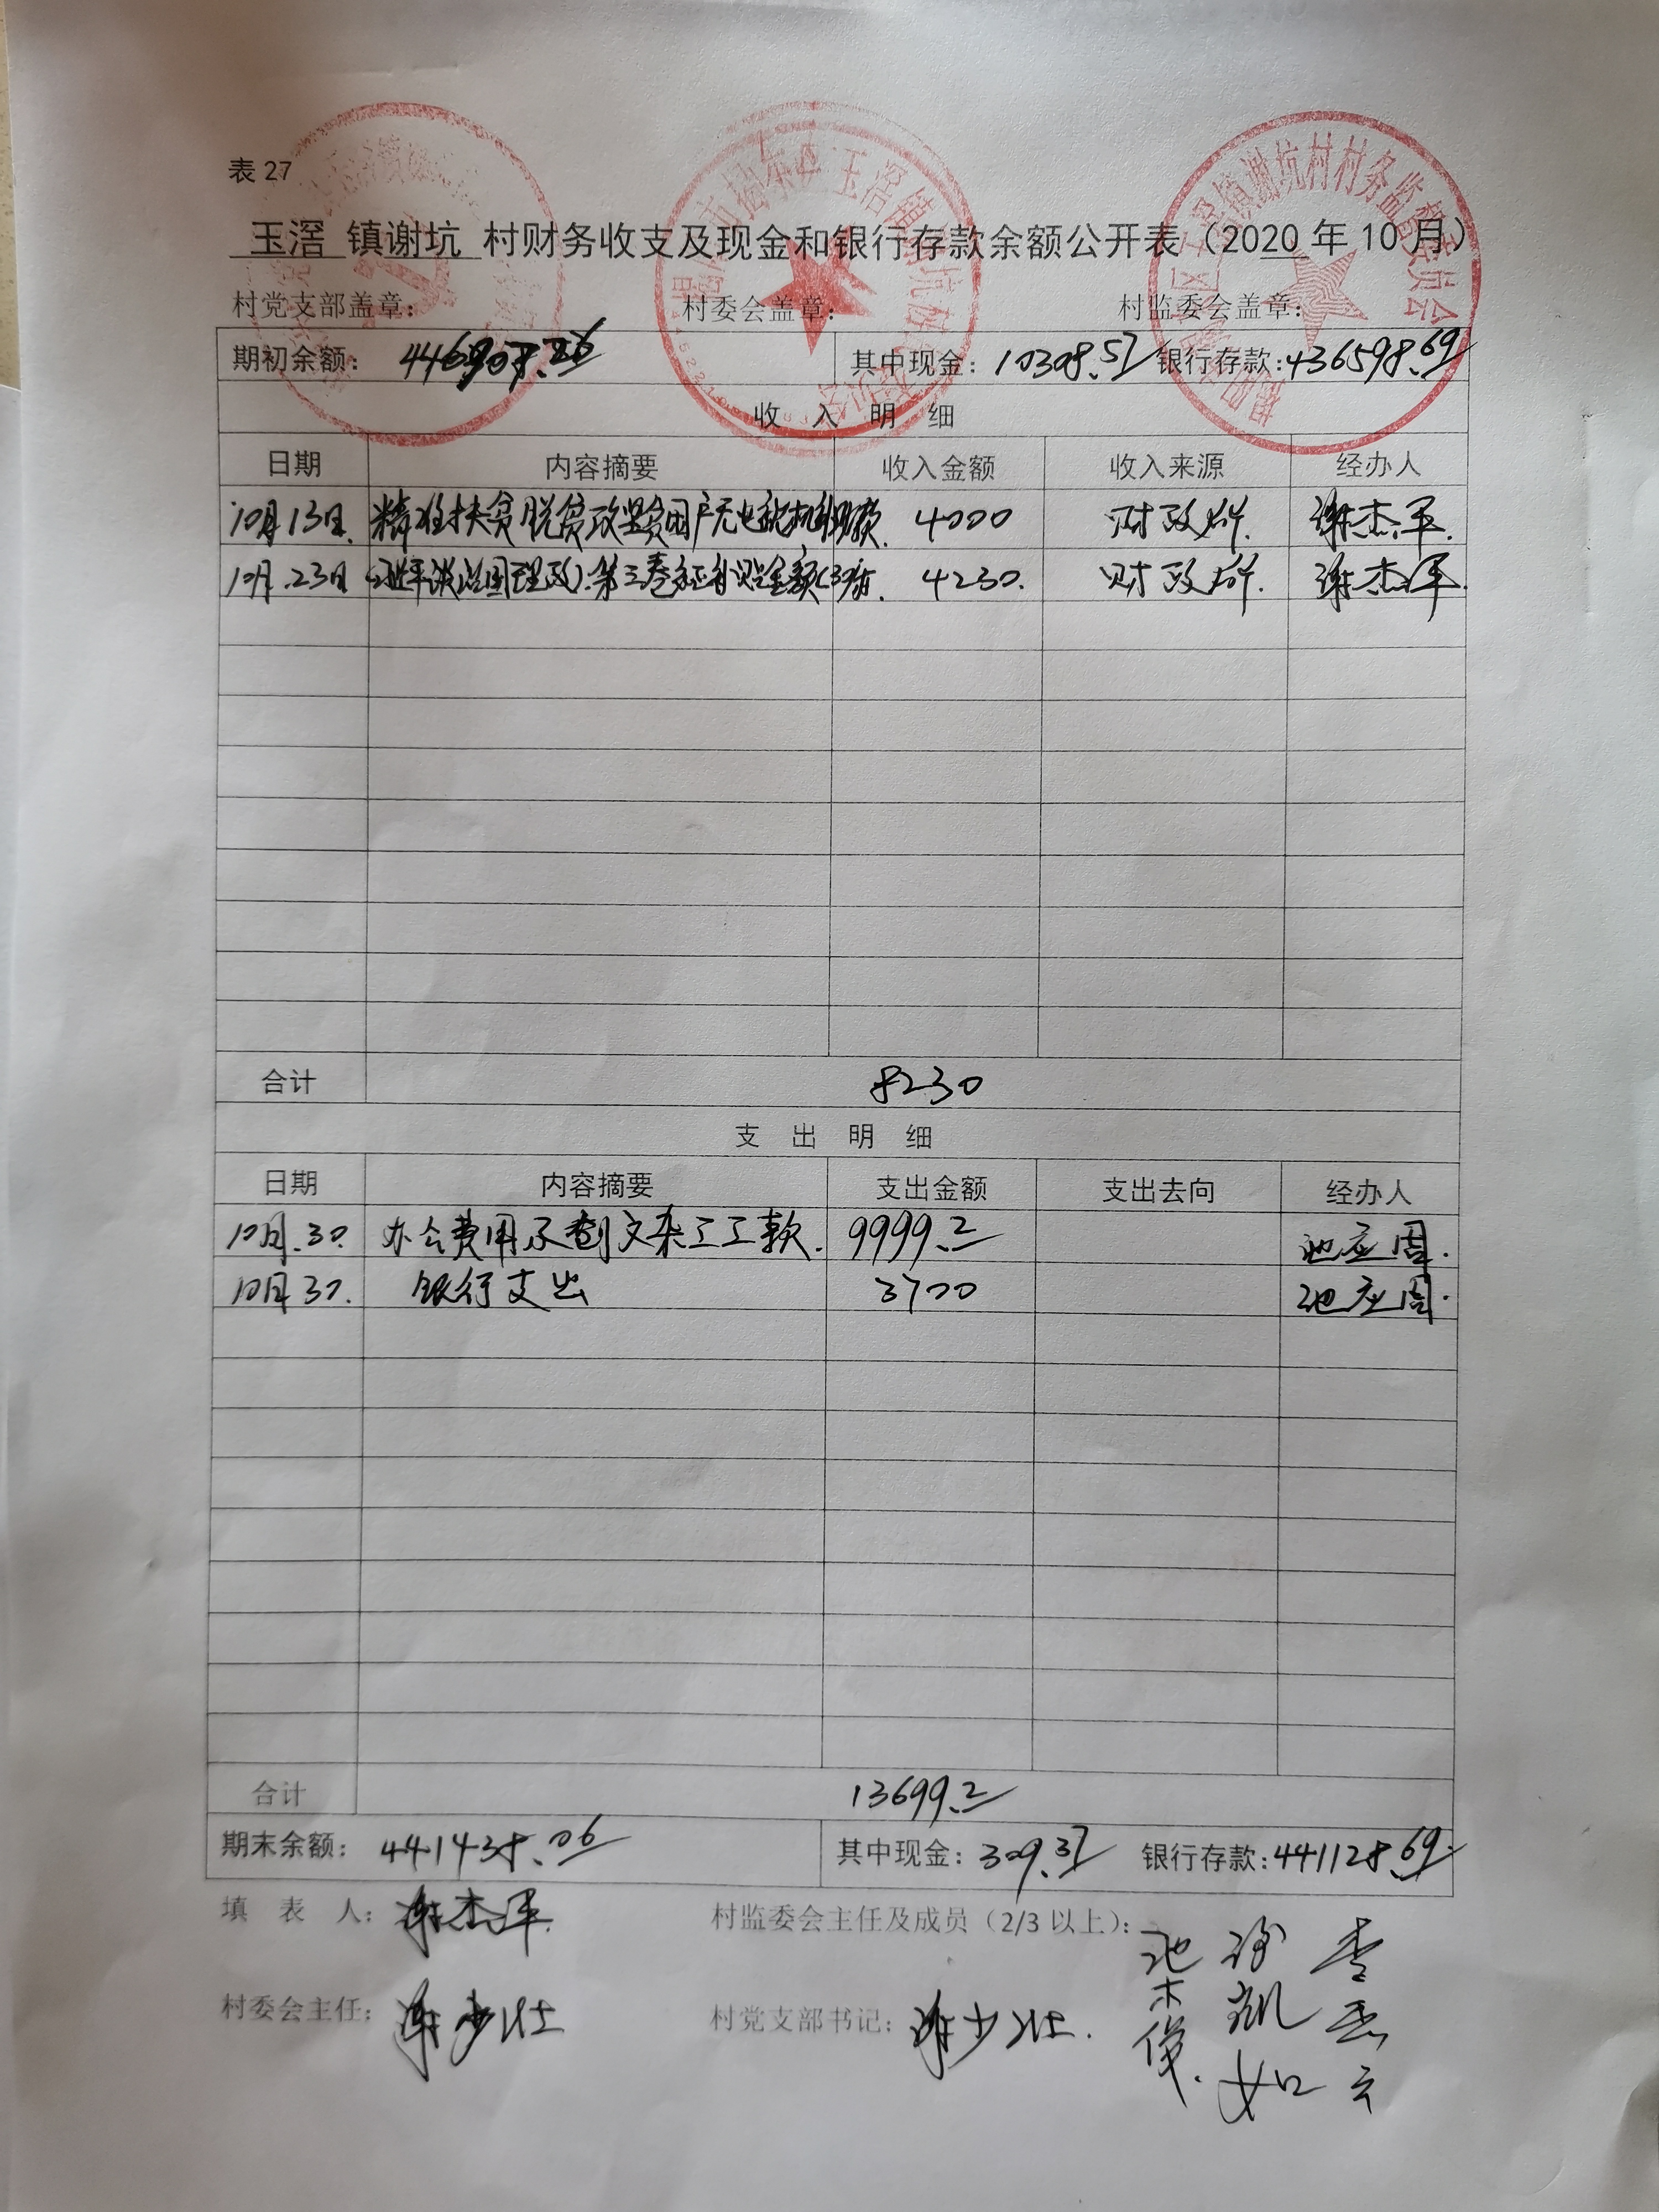 表 27
玉滘 镇谢坑 村财务收支及现金和银行存款余额公开表（2020 年 10 月）
村党支部盖章： 村委会盖章： 村监委会盖章：
期初余额： 446907.26 其中现金：10308.57 银行存款：436598.69
收 入 明 细
日期 内容摘要 收入金额 收入来源 经办人
10月13日. 精准扶贫脱贫攻坚贫困户无 4000 财政所. 谢杰军.
10月.23日 谈治国理政》第三卷 金额 4230. 财政所. 谢杰军.
合计 8230
支 出 明 细
日期 内容摘要 支出金额 支出去向 经办人
10月.30. 办公费用及 杂工工款. 9999.2 池应周.
10月30. 银行支出 3700 池应周.
合计 13699.2
期末余额： 441438.06 其中现金：309.37 银行存款：441128.69
填 表 人： 谢杰军. 村监委会主任及成员（2/3 以上）：
村委会主任： 谢少壮 村党支部书记： 谢少壮.
玉滘镇谢坑村村务监督委员会